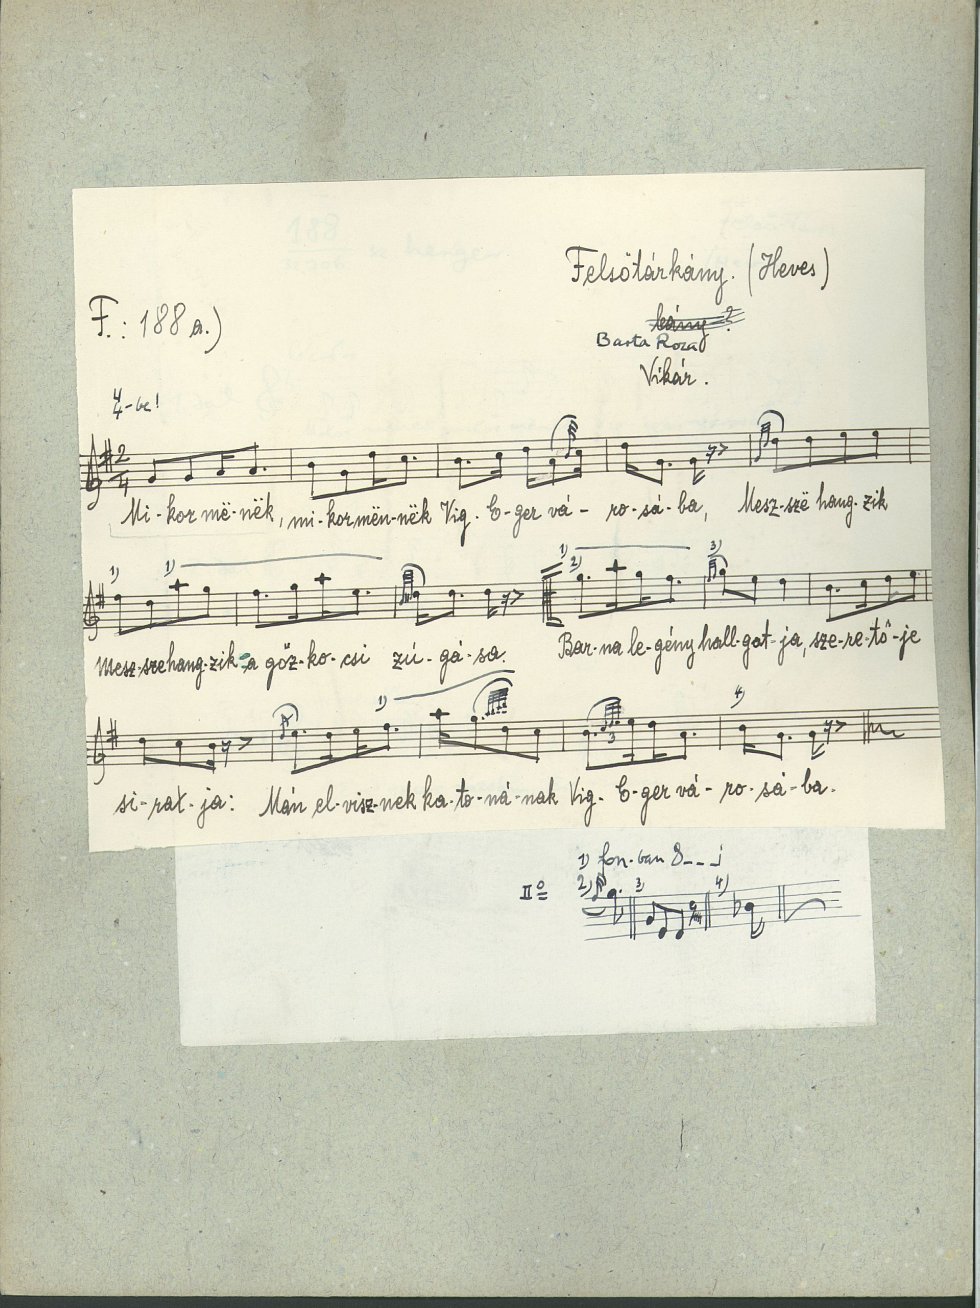 Felsőtárkány. (Heves)
F.: 188 a.)
Barta Roza
Vikár.
4/4-be!
2/4
Mi-kor më-nëk, mi-kor mën-nëk Vig. E-ger vá-ro-sá-ba, Mesz-szë hang-zik
1) 1) 1) 2) 3)
Mesz-sze hang-zik a gőz-ko-csi zú-gá-sa. Bar-na le-gény hall-gat-ja, sze-re-tő-je
1) 3 4)
si-rat-ja: Mán el-visz-nek ka-to-ná-nak Vig. E-ger vá-ro-sá-ba.
1) fon-ban 8---
IIº 2) 3) 4)